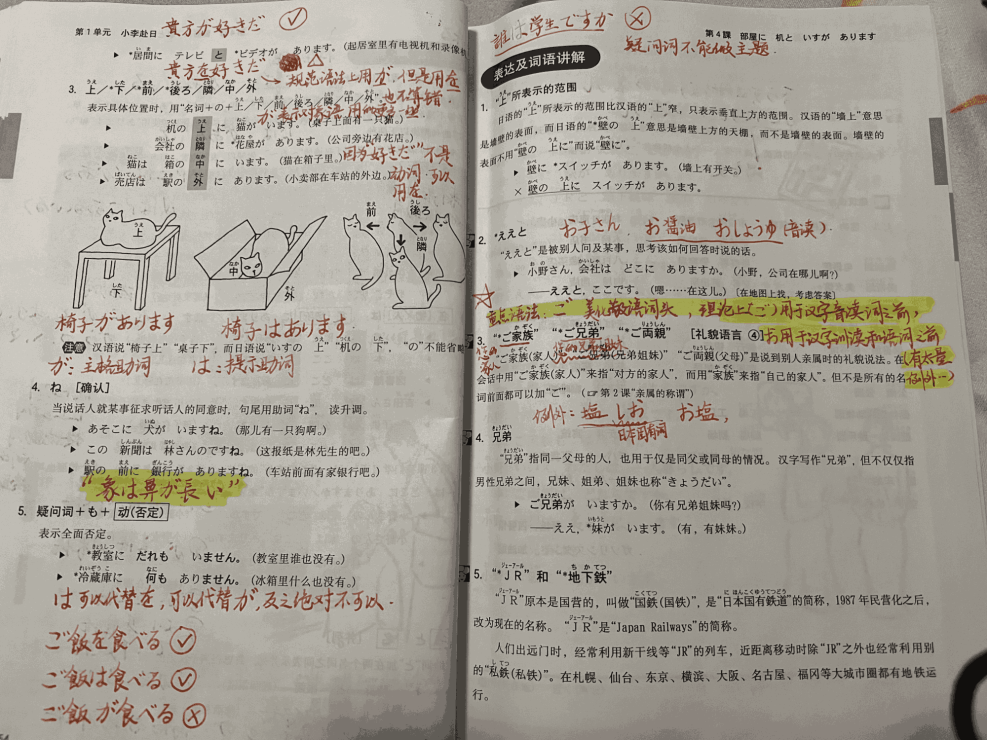 第1单元 小李赴日
貴方が好きだ
▶ *居間に テレビ と *ビデオが あります。(起居室里有电视机和录像机
貴方を好きだ → 规范语法上用が,但是用を
也不算错
3. 上/*下/*前/*後ろ/隣/中/外
表示具体位置时,用“名词+の+上/下/前/後ろ/隣/中/外
▶ 机の 上 に 猫が います。(桌子上面有一只猫。)
▶ 会社の 隣 に *花屋が あります。(公司旁边有花店。)
▶ 猫は 箱の 中 に います。(猫在箱子里。)
▶ 売店は 駅の 外 に あります。(小卖部在车站的外边。)
因为好きだ”不是
动词,可以
用を.
上
下
中
外
前
後ろ
隣
椅子があります
椅子はあります.
注意 汉语说“椅子上”“桌子下”,而日语说“いすの 上”“机の 下”,“の”不能省略
が:主格助词 は:提示助词
4. ね [确认]
当说话人就某事征求听话人的同意时,句尾用助词“ね”,读升调。
▶ あそこに 犬が いますね。(那儿有一只狗啊。)
▶ この 新聞は 林さんのですね。(这报纸是林先生的吧。)
▶ 駅の 前に 銀行が ありますね。(车站前面有家银行吧。)
“象は鼻が長い”
5. 疑问词+も+動(否定)
表示全面否定。
▶ *教室に だれも いません。(教室里谁也没有。)
▶ *冷蔵庫に 何も ありません。(冰箱里什么也没有。)
は可以代替を,可以代替が,反之绝对不可以.
ご飯を食べる ✓
ご飯は食べる ✓
ご飯が食べる ×
誰は学生ですか ×
疑问词不能做主题.
第4課 部屋に 机と いすが あります
表达及词语讲解
1. “上”所表示的范围
日语的“上”所表示的范围比汉语的“上”窄,只表示垂直上方的范围。汉语的“墙上”意思
是墙壁的表面,而日语的“*壁の 上”意思是墙壁上方的天棚,而不是墙壁的表面。墙壁的
表面不用“壁の 上に”而说“壁に”。
▶ 壁に *スイッチが あります。(墙上有开关。)
× 壁の 上に スイッチが あります。
お子さん お醤油 おしょうゆ(音读).
2. *ええと
“ええと”是被别人问及某事,思考该如何回答时说的话。
▶ 小野さん,会社は どこに ありますか。(小野,公司在哪儿啊?)
——ええと,ここです。(嗯……在这儿。)〔在地图上找,考虑答案〕
☆ 重点语法:ご 美化敬语词头,理论上(ご)用于汉字音读词之前,
3. “*ご家族” “*ご兄弟” “*ご両親” [礼貌语言 ④]
お用于汉字训读和语词之前
(有大量
例外~)
“ご家族(家人)”“ご兄弟(兄弟姐妹)”“ご両親(父母)”是说到别人亲属时的礼貌说法。在
会话中用“ご家族(家人)”来指“对方的家人”,而用“家族”来指“自己的家人”。但不是所有的名
词前面都可以加“ご”。(☞ 第2课“亲属的称谓”)
例外:塩 しお お塩,
日本固有词
4. 兄弟
“兄弟”指同一父母的人,也用于仅是同父或同母的情况。汉字写作“兄弟”,但不仅仅指
男性兄弟之间,兄妹、姐弟、姐妹也称“きょうだい”。
▶ ご兄弟が いますか。(你有兄弟姐妹吗?)
——ええ,*妹が います。(有,有妹妹。)
5. “*JR” 和 “*地下鉄”
“JR”原本是国营的,叫做“国鉄(国铁)”,是“日本国有鉄道”的简称,1987年民营化之后,
改为现在的名称。“JR”是“Japan Railways”的简称。
人们出远门时,经常利用新干线等“JR”的列车,近距离移动时除“JR”之外也经常利用别
的“私鉄(私铁)”。在札幌、仙台、东京、横滨、大阪、名古屋、福冈等大城市圈都有地铁运
行。